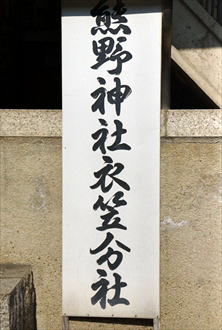 熊野神社衣笠分社